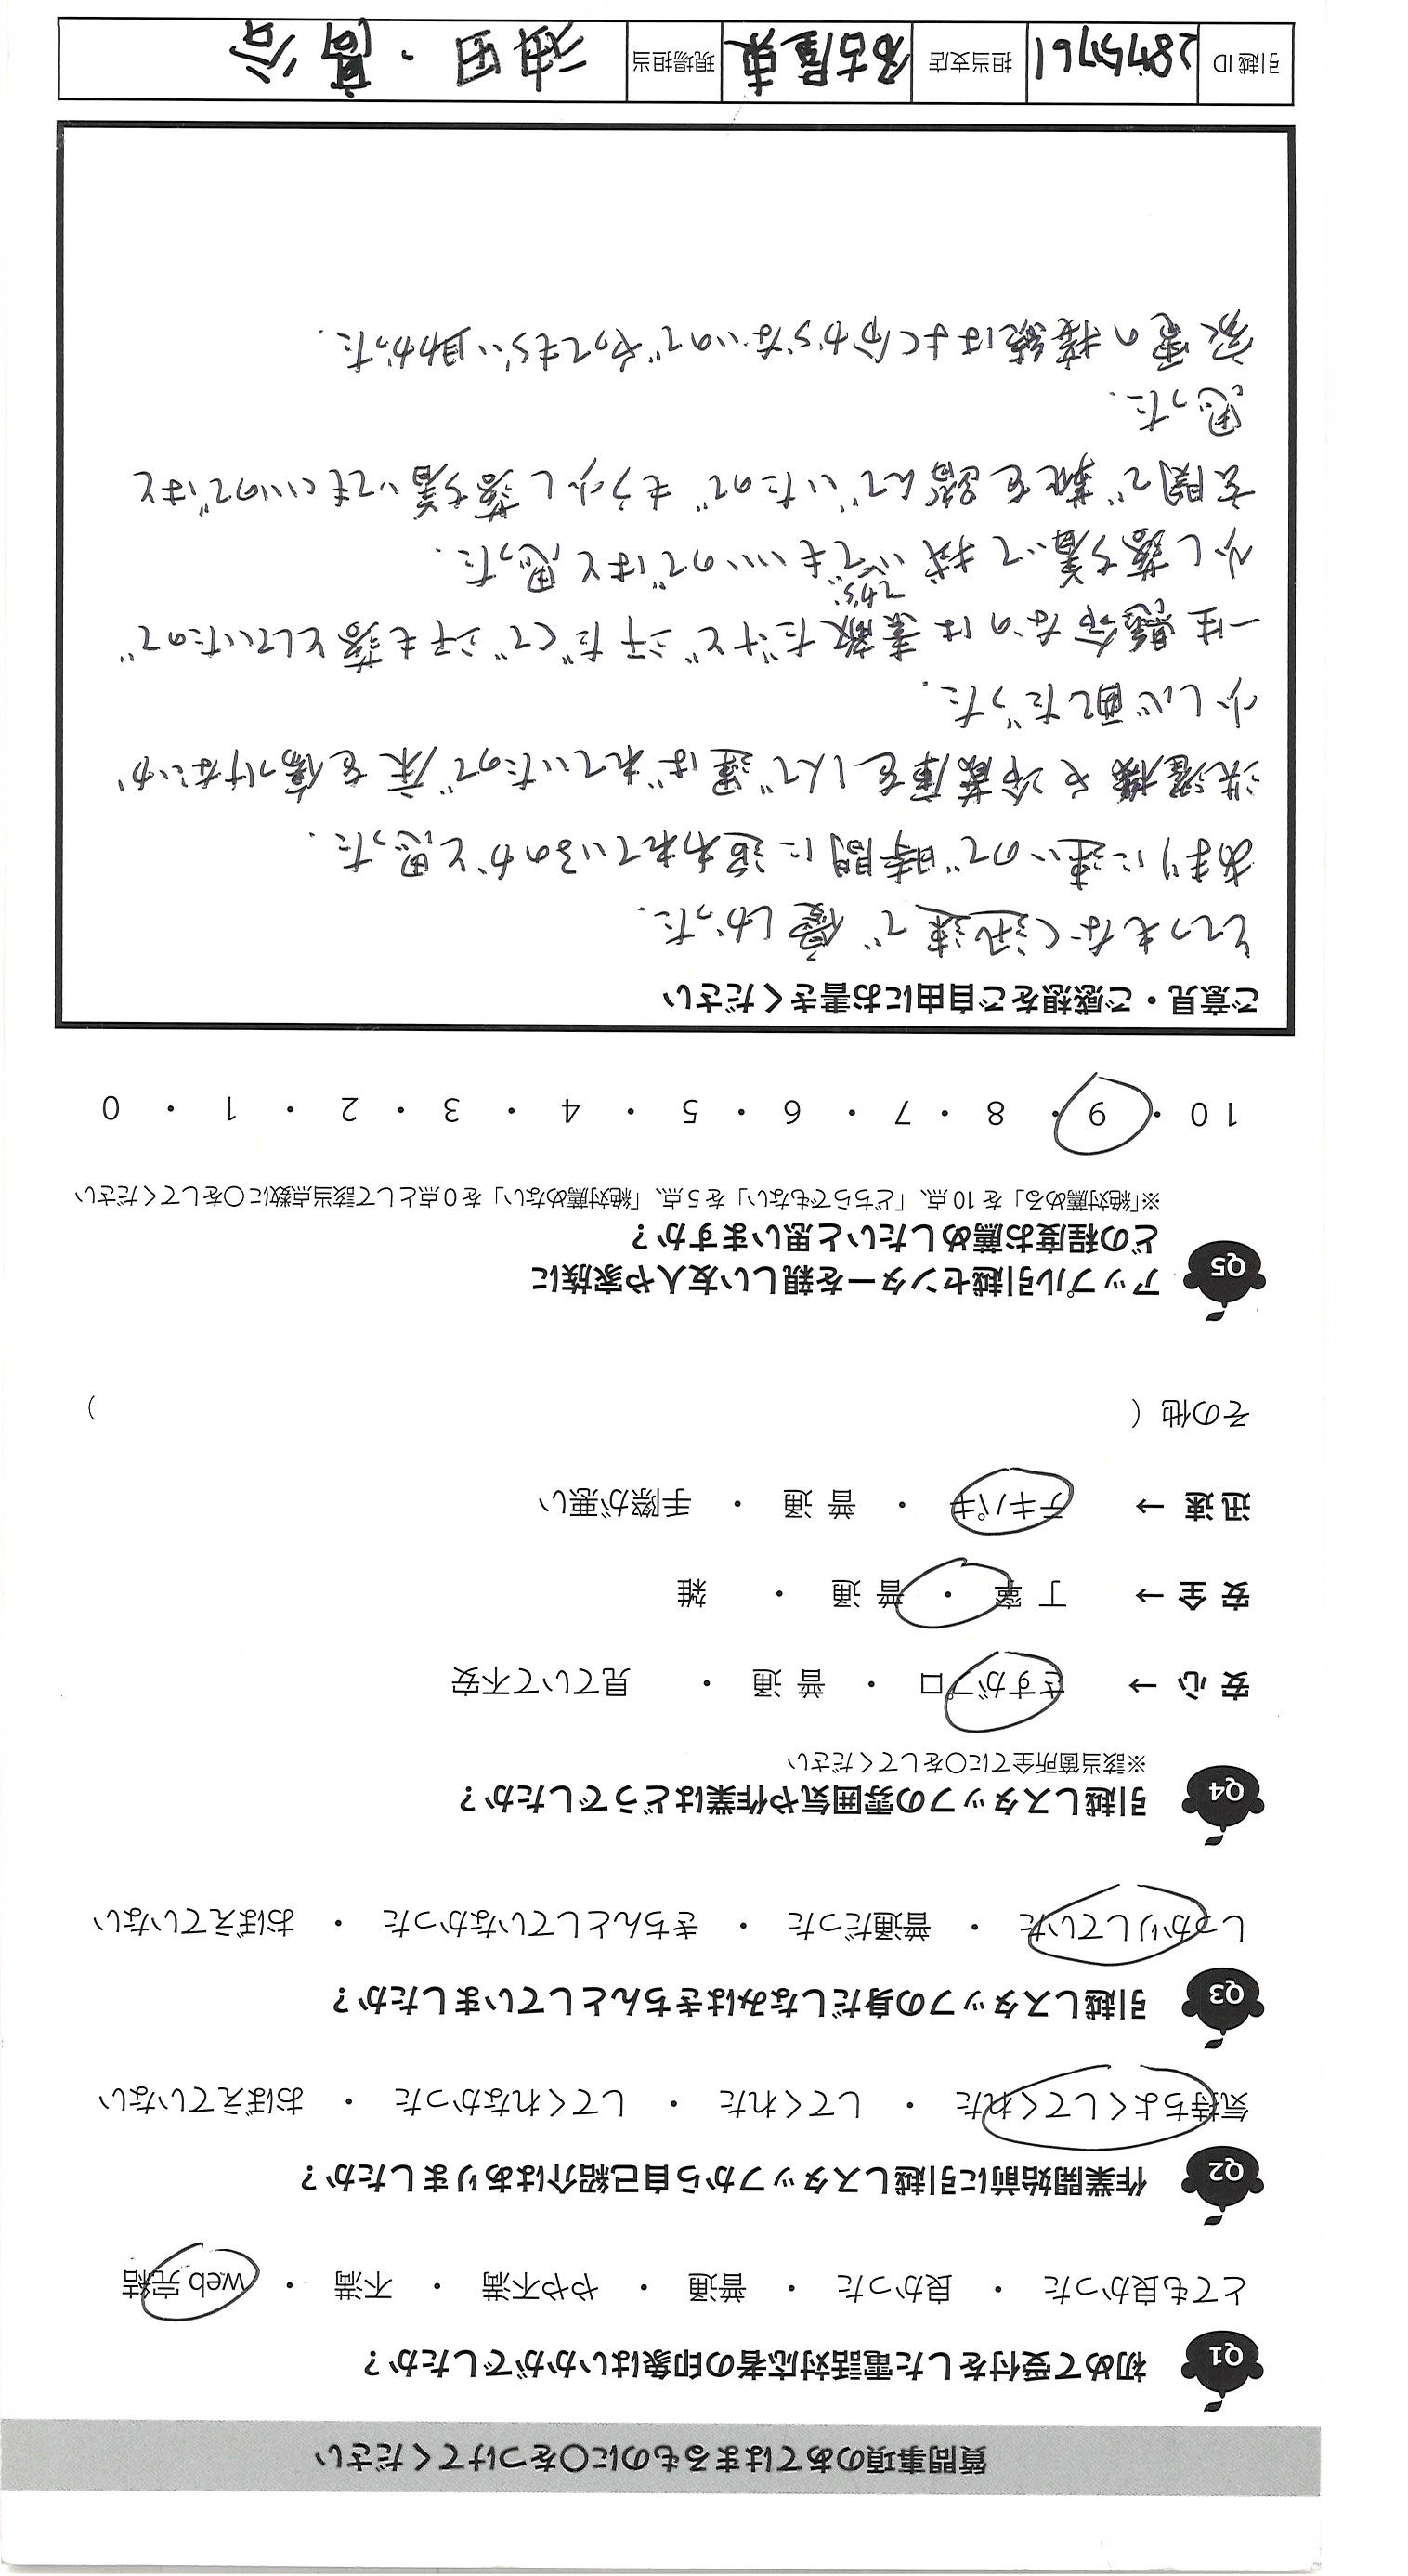 質問事項のあてはまるものに○をつけてください
Q1 初めて受付をした電話対応者の印象はいかがでしたか？
とても良かった ・ 良かった ・ 普通 ・ やや不満 ・ 不満 ・ web 完結
Q2 作業開始前に引越しスタッフから自己紹介はありましたか？
気持ちよくしてくれた ・ してくれた ・ してくれなかった ・ おぼえていない
Q3 引越しスタッフの身だしなみはきちんとしていましたか？
しっかりしていた ・ 普通だった ・ きちんとしていなかった ・ おぼえていない
Q4 引越しスタッフの雰囲気や作業はどうでしたか？
※該当箇所全てに○をしてください
安 心 → さすがプロ ・ 普 通 ・ 見ていて不安
安 全 → 丁 寧 ・ 普 通 ・ 雑
迅 速 → テキパキ ・ 普 通 ・ 手際が悪い
その他（ ）
Q5 アップル引越センターを親しい友人や家族に
どの程度お薦めしたいと思いますか？
※「絶対薦める」を 10 点、「どちらでもない」を 5 点、「絶対薦めない」を 0 点として該当点数に○をしてください
10 ・ 9 ・ 8 ・ 7 ・ 6 ・ 5 ・ 4 ・ 3 ・ 2 ・ 1 ・ 0
ご意見・ご感想をご自由にお書きください
とてつもなく迅速で優しかった.
あまりに速いので時間に追われているのかと思った.
洗濯機や冷蔵庫を1人で運ばれていたので床を傷つけないか
少し心配だった.
一生懸命なのは素敵だけど汗だくで汗も落としていたので
少し落ち着いて拭いてからでもいいのではと思った.
玄関で靴を踏んでいたのでもう少し落ち着いてもいいのではと
思った.
家電の接続はよく分からないのでやってもらい助かった.
引越 ID 28475761 担当支店 名古屋東 現場担当 神田・高谷